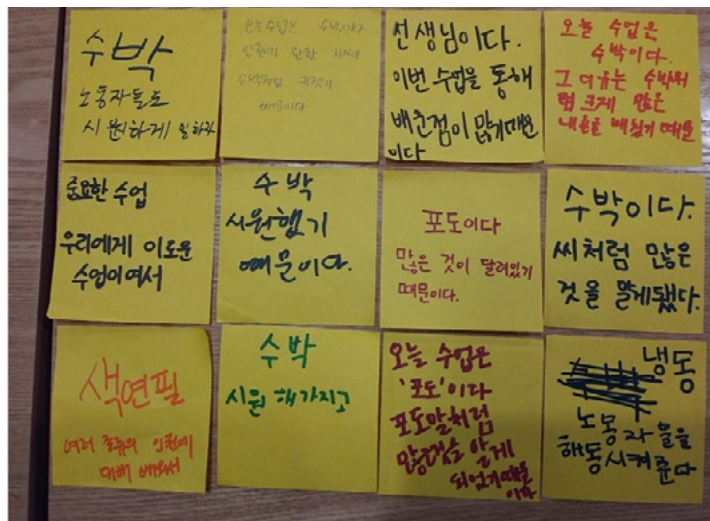 수박
노동자들도
시원하게 일하라
오늘수업은 수박이다
수박처럼
때문이다
선생님이다.
이번 수업을 통해
배운점이 많기때문
이다
오늘 수업은
수박이다.
그 이유는 수박처
럼 크게 많은
내용을 배웠기 때문
중요한 수업
우리에게 이로운
수업이여서
수박
시원했기
때문이다.
포도이다
많은 것이 달려있기
때문이다.
수박이다.
씨처럼 많은
것을 알게됐다.
색연필
여러 종류의 인권에
대해 배워서
수박
시원해가지고
오늘 수업은
'포도'이다
포도알처럼
많은것을 알게
되었기때문
이다
냉동
노동자들을
해동시켜준다